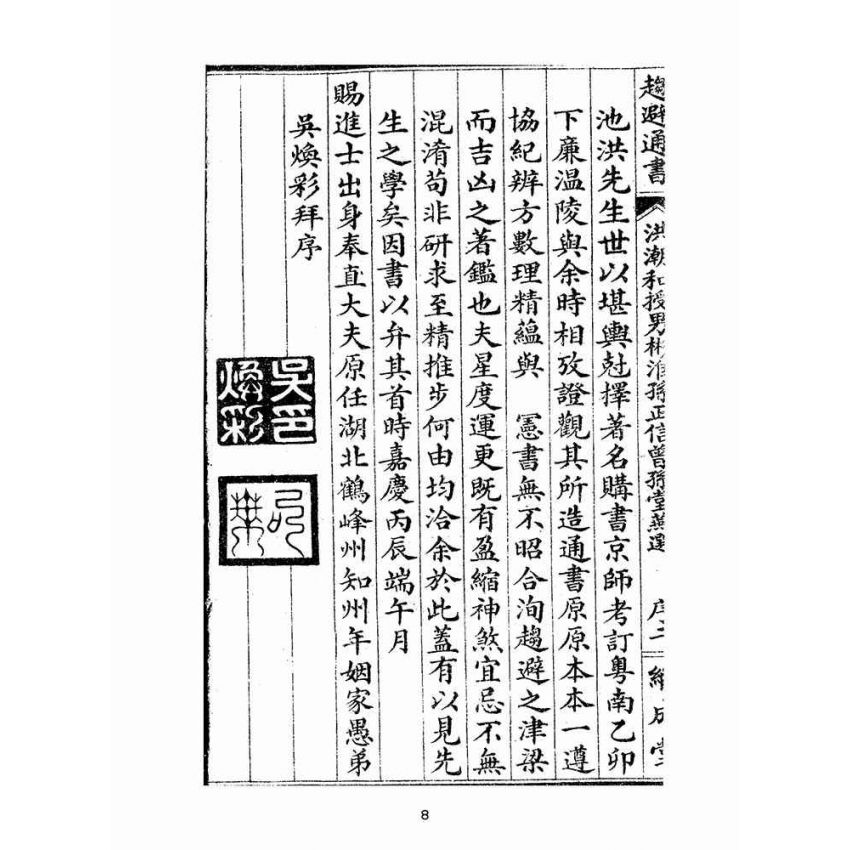 趨避通書 洪潮和授男彬淮孫正信曾孫堂燕選 序二 繼成堂
池洪先生世以堪輿尅擇著名購書京師考訂粤南乙卯
下廉温陵與余時相攷證觀其所造通書原原本本一遵
協紀辨方數理精蘊與 憲書無不昭合洵趨避之津梁
而吉凶之著鑑也夫星度運更既有盈縮神煞宜忌不無
混淆苟非研求至精推步何由均洽余於此蓋有以見先
生之學矣因書以弁其首時嘉慶丙辰端午月
賜進士出身奉直大夫原任湖北鶴峰州知州年姻家愚弟
吳煥彩拜序
吳煥彩印
8